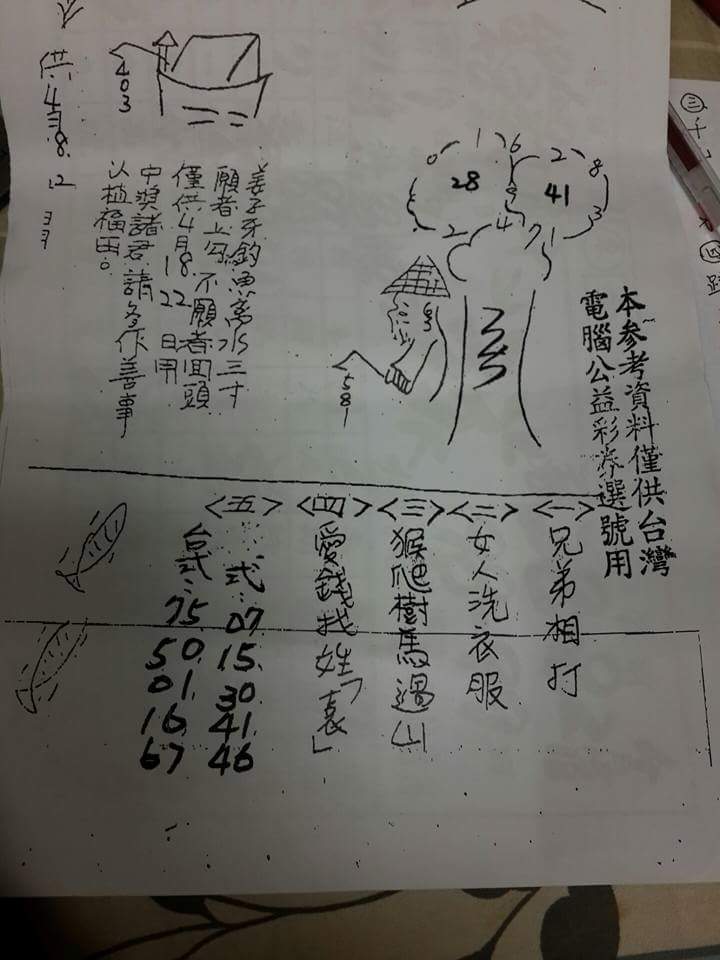 本參考資料僅供台灣
電腦公益彩券選號用
0 1 6
2 8
28
41
3
2 4 7 1
581
姜子牙釣魚离水三寸
願者上勾不願者回頭
僅供4月18.22日用
中獎諸君請多作善事
以植福田。
403
供.4.3.8.12
<一>兄弟相打
<二>女人洗衣服
<三>猴爬樹馬過山
<四>愛錢找姓「袁」
<五>
式:07 15. 30 41. 46
台式:75 50. 01. 16. 67